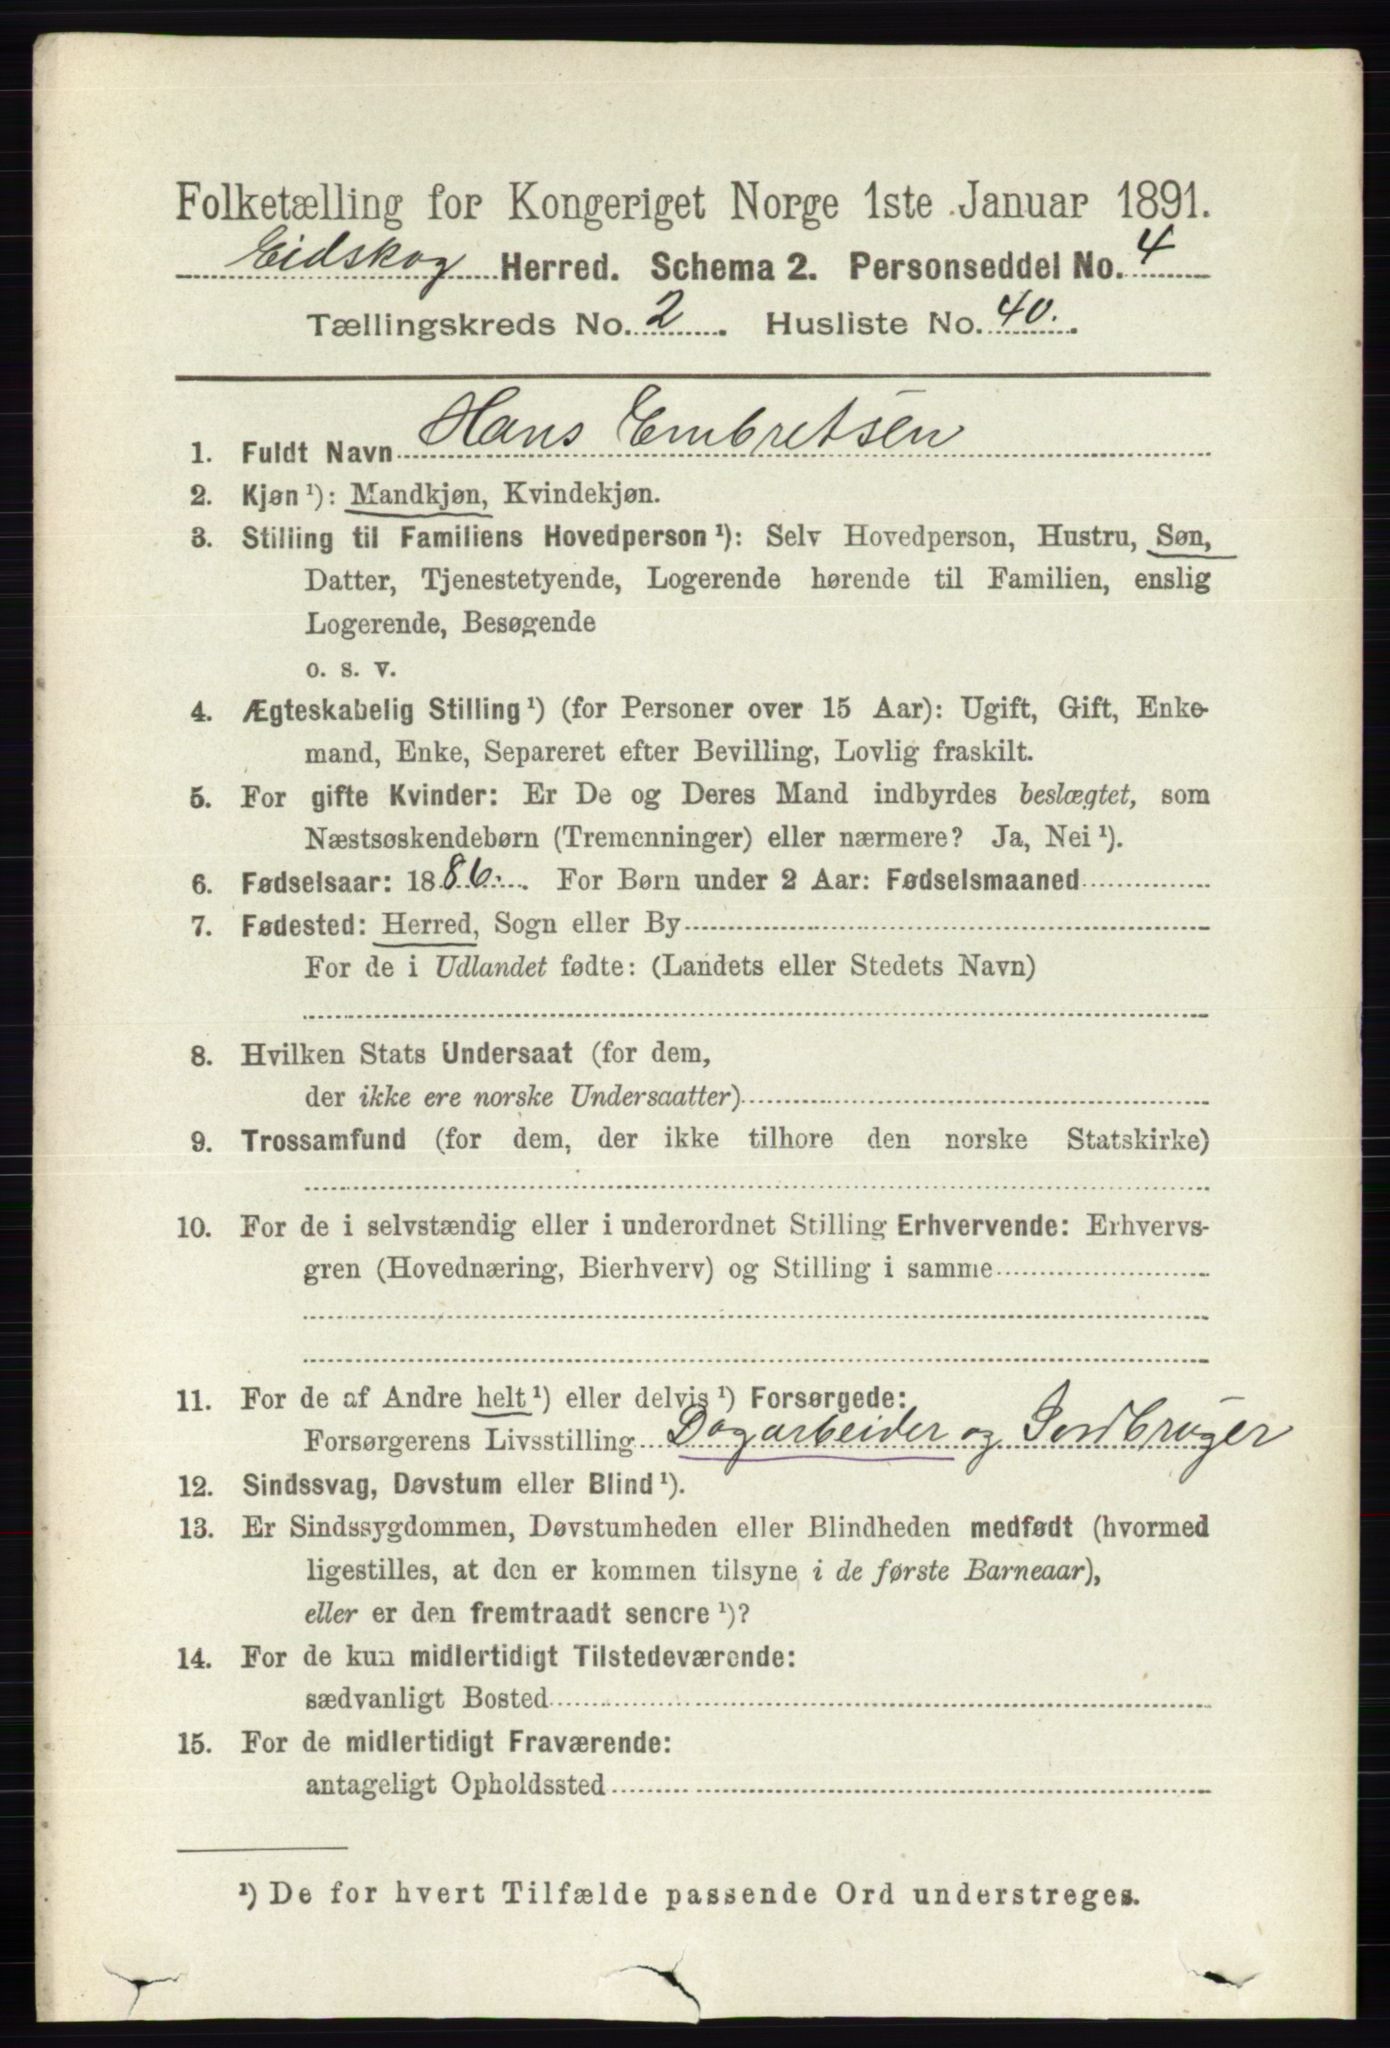 Folketælling for Kongeriget Norge 1ste Januar 1891.
Eidskog Herred. Schema 2. Personseddel No. 4
Tællingskreds No. 2. Husliste No. 40.
1. Fuldt Navn Hans Embretsen
2. Kjøn ¹): Mandkjøn, Kvindekjøn.
3. Stilling til Familiens Hovedperson ¹): Selv Hovedperson, Hustru, Søn,
Datter, Tjenestetyende, Logerende hørende til Familien, enslig
Logerende, Besøgende
o. s. v.
4. Ægteskabelig Stilling ¹) (for Personer over 15 Aar): Ugift, Gift, Enke-
mand, Enke, Separeret efter Bevilling, Lovlig fraskilt.
5. For gifte Kvinder: Er De og Deres Mand indbyrdes beslægtet, som
Næstsøskendebørn (Tremenninger) eller nærmere? Ja, Nei ¹).
6. Fødselsaar: 1886. For Børn under 2 Aar: Fødselsmaaned
7. Fødested: Herred, Sogn eller By
For de i Udlandet fødte: (Landets eller Stedets Navn)
8. Hvilken Stats Undersaat (for dem,
der ikke ere norske Undersaatter)
9. Trossamfund (for dem, der ikke tilhore den norske Statskirke)
10. For de i selvstændig eller i underordnet Stilling Erhvervende: Erhvervs-
gren (Hovednæring, Bierhverv) og Stilling i samme
11. For de af Andre helt ¹) eller delvis ¹) Forsørgede:
Forsørgerens Livsstilling Dagarbeider og Jordbruger
12. Sindssvag, Døvstum eller Blind ¹).
13. Er Sindssygdommen, Døvstumheden eller Blindheden medfødt (hvormed
ligestilles, at den er kommen tilsyne i de første Barneaar),
eller er den fremtraadt senere ¹)?
14. For de kun midlertidigt Tilstedeværende:
sædvanligt Bosted
15. For de midlertidigt Fraværende:
antageligt Opholdssted
¹) De for hvert Tilfælde passende Ord understreges.